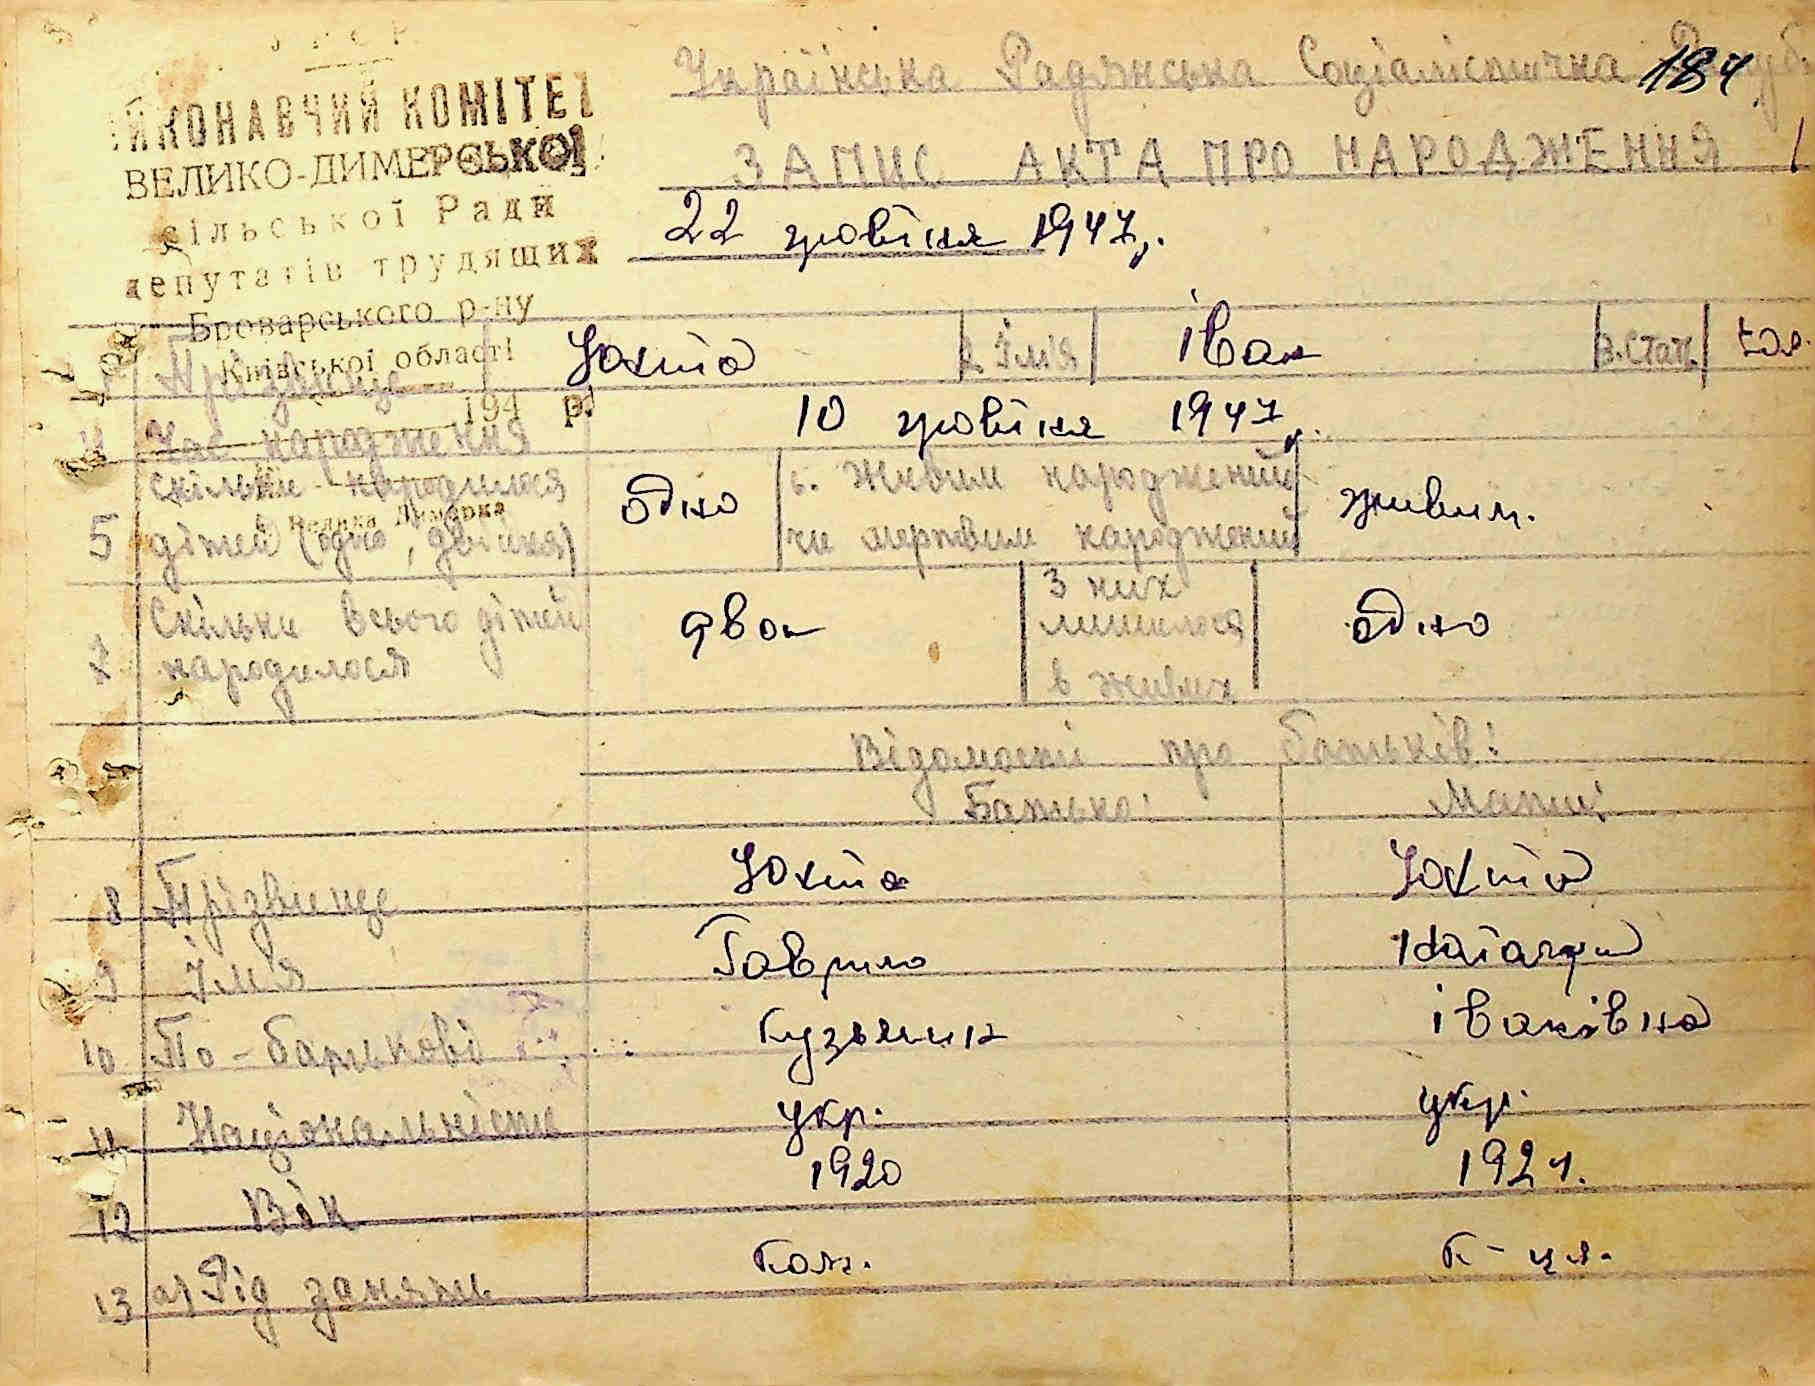 У Р С Р
ИКОНАВЧИЙ КОМІТЕТ
ВЕЛИКО-ДИМЕРСЬКОЇ
сільської Ради
депутатів трудящих
Броварського р-ну
Київської області
194 р.
с. Велика Димерка
Українська Радянська Соціалістична Респуб
184
ЗАПИС АКТА ПРО НАРОДЖЕННЯ
22 жовтня 1947р.
1 Прізвище Юхта 2. Ім'я Іван 3. Стать чол.
4 Час народження 10 жовтня 1947р.
5 Скільки народилося дітей (одно, двійня) одно 6. Живим народжений чи мертвим народжений живим.
7 Скільки всього дітей народилося двоє З них лишилося в живих одно
Відомості про батьків:
Батько: Мати:
8 Прізвище Юхта Юхта
9 Ім'я Гаврило
10 По-батькові Кузьмич Іванівна
11 Національність укр. укр.
12 Вік 1920 1921.
13 а) Рід занять колг. к-ця.